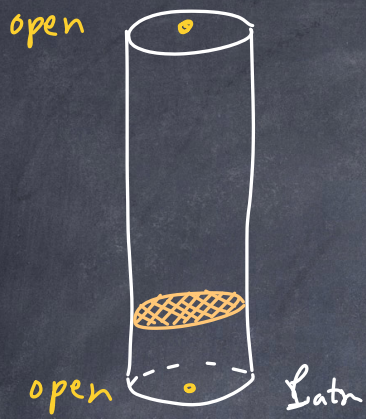 open
open
1 atm